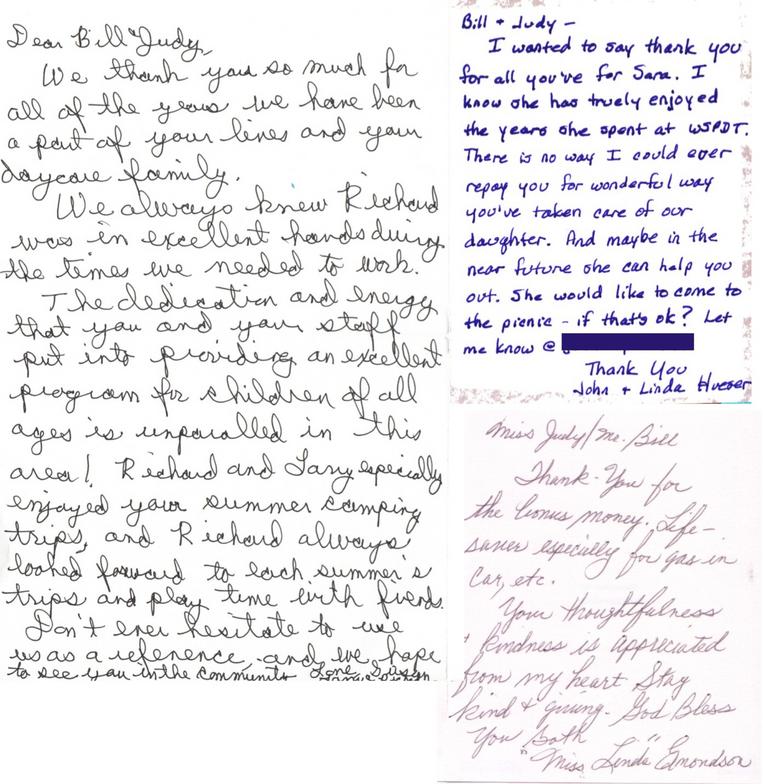 Dear Bill & Judy,
We thank you so much for
all of the years we have been
a part of your lives and your
daycare family.
We always knew Richard
was in excellent hands during
the times we needed to work.
The dedication and energy
that you and your staff
put into providing an excellent
program for children of all
ages is unparalled in this
area! Richard and Larry especially
enjoyed your summer camping
trips, and Richard always
looked forward to each summer's
trips and play time with friends.
Don't ever hesitate to use
us as a reference, and we hope
to see you in the community
Bill + Judy -
I wanted to say thank you
for all you've for Sara. I
know she has truely enjoyed
the years she spent at WSPDT.
There is no way I could ever
repay you for wonderful way
you've taken care of our
daughter. And maybe in the
near future she can help you
out. She would like to come to
the picnic - if that's ok? Let
me know @
Thank You
John + Linda Hueser
Miss Judy/Mr. Bill
Thank-You for
the bonus money. Life-
saver especially for gas in
car, etc.
Your thoughtfulness
+ kindness is appreciated
from my heart Stay
kind + giving. God Bless
You both
"Miss Linda" Emondson